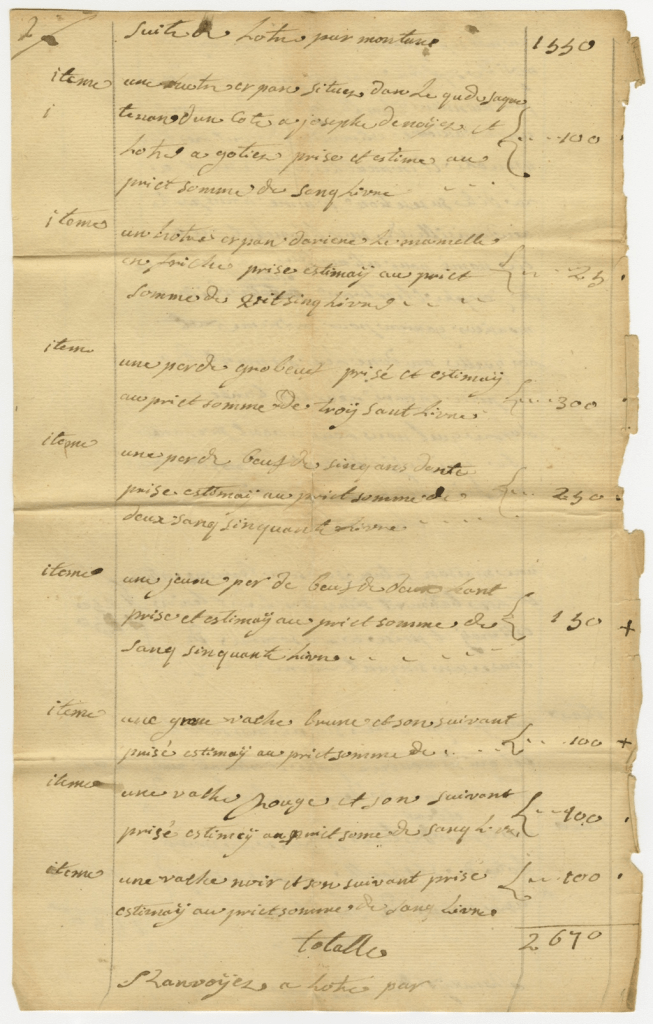 2
suite de lotre par montane 1550
iteme une autre erpan situez dan le qu de saque
tenan d'un cote a joseph denoyez et 100
lotre a gotier prise et estime au
prict somme de sanq livre
iteme un autre erpan dariere le mamelle
en friche prise estimaÿ au prict 25
somme de vit sinq livre
iteme une per de gro beuf prisé et estimaÿ
au prict somme De troÿ sant livre 300
iteme une per de beuf de sinq ans dente
prise estimaÿ au prict somme de 250
deux sanq sinquante livre
iteme une jeune per de beuf de deux lant
prise et estimaÿ au prict somme de 150 +
sanq sinquante livre
iteme une grau vache brune et son suivant
prisé estimaÿ au prict somme de 100 +
iteme une vache rouge et son suivant
prisé estimeÿ au prict some de sanq livre 100
iteme une vache noir et son suivant prisé 100
estimaÿ au prict somme de sanq livre
totalle 2670
Ranvoÿez a lotre par